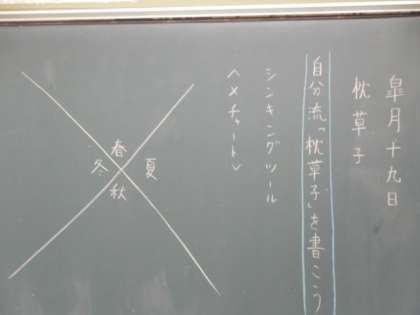 皐月十九日
枕草子
自分流「枕草子」を書こう
シンキングツール
〈Xチャート〉
春
冬
夏
秋